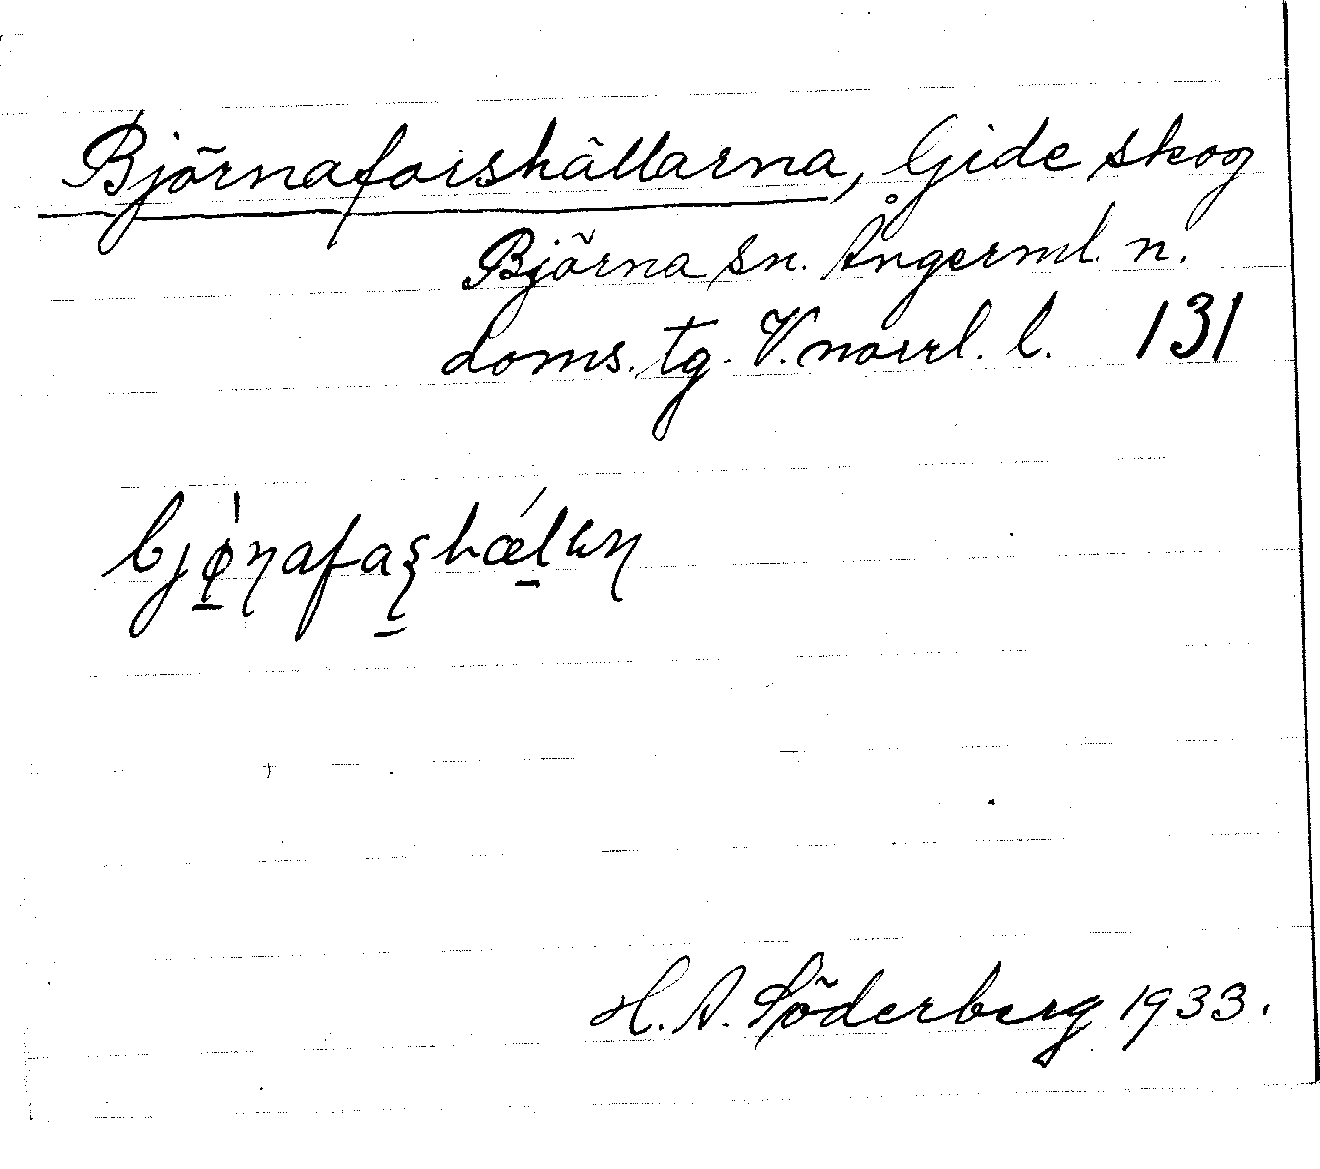 Björnaforshällarna, Gide skog
Björna sn. Ångerml. n.
doms. tg. V. norrl. l. 131
H. A. Söderberg 1933.